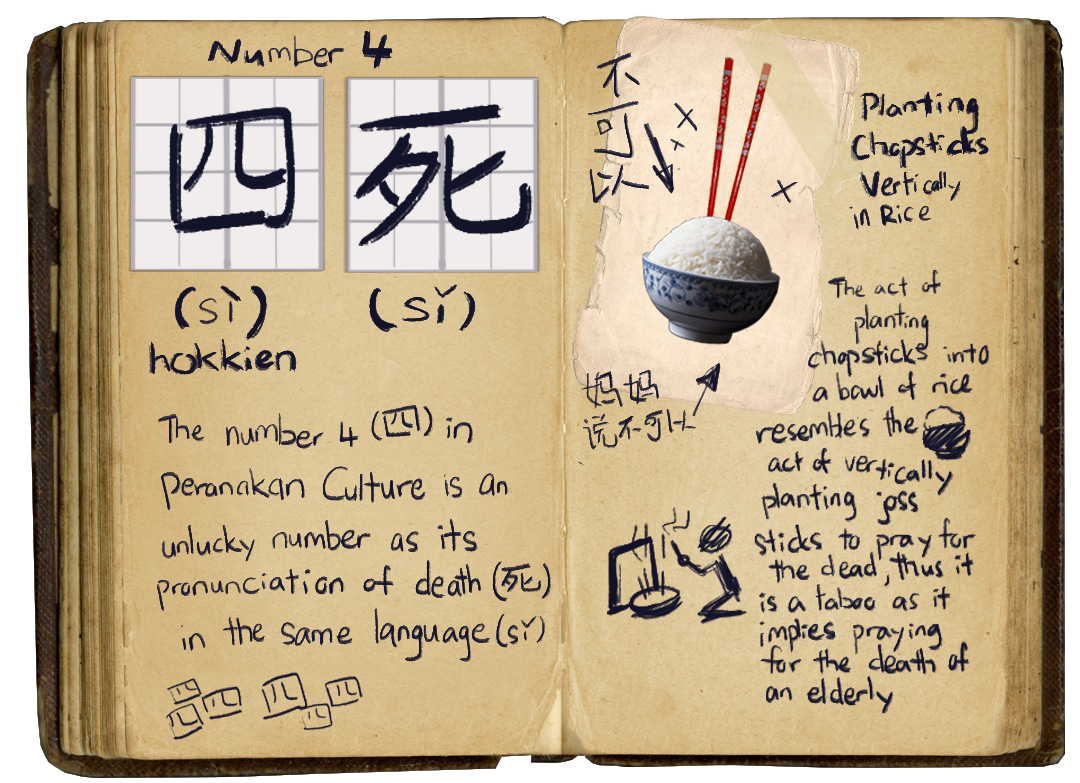 Number 4
四 死
(sì) (sǐ)
hokkien
The number 4 (四) in
Peranakan Culture is an
unlucky number as its
pronunciation of death (死)
in the same language (sǐ)
四 四 四 四 四 四
不
可
以
Planting
Chopsticks
Vertically
in Rice
妈妈
说不可以
The act of
planting
chopsticks into
a bowl of rice
resembles the
act of vertically
planting joss
sticks to pray for
the dead, thus it
is a taboo as it
implies praying
for the death of
an elderly